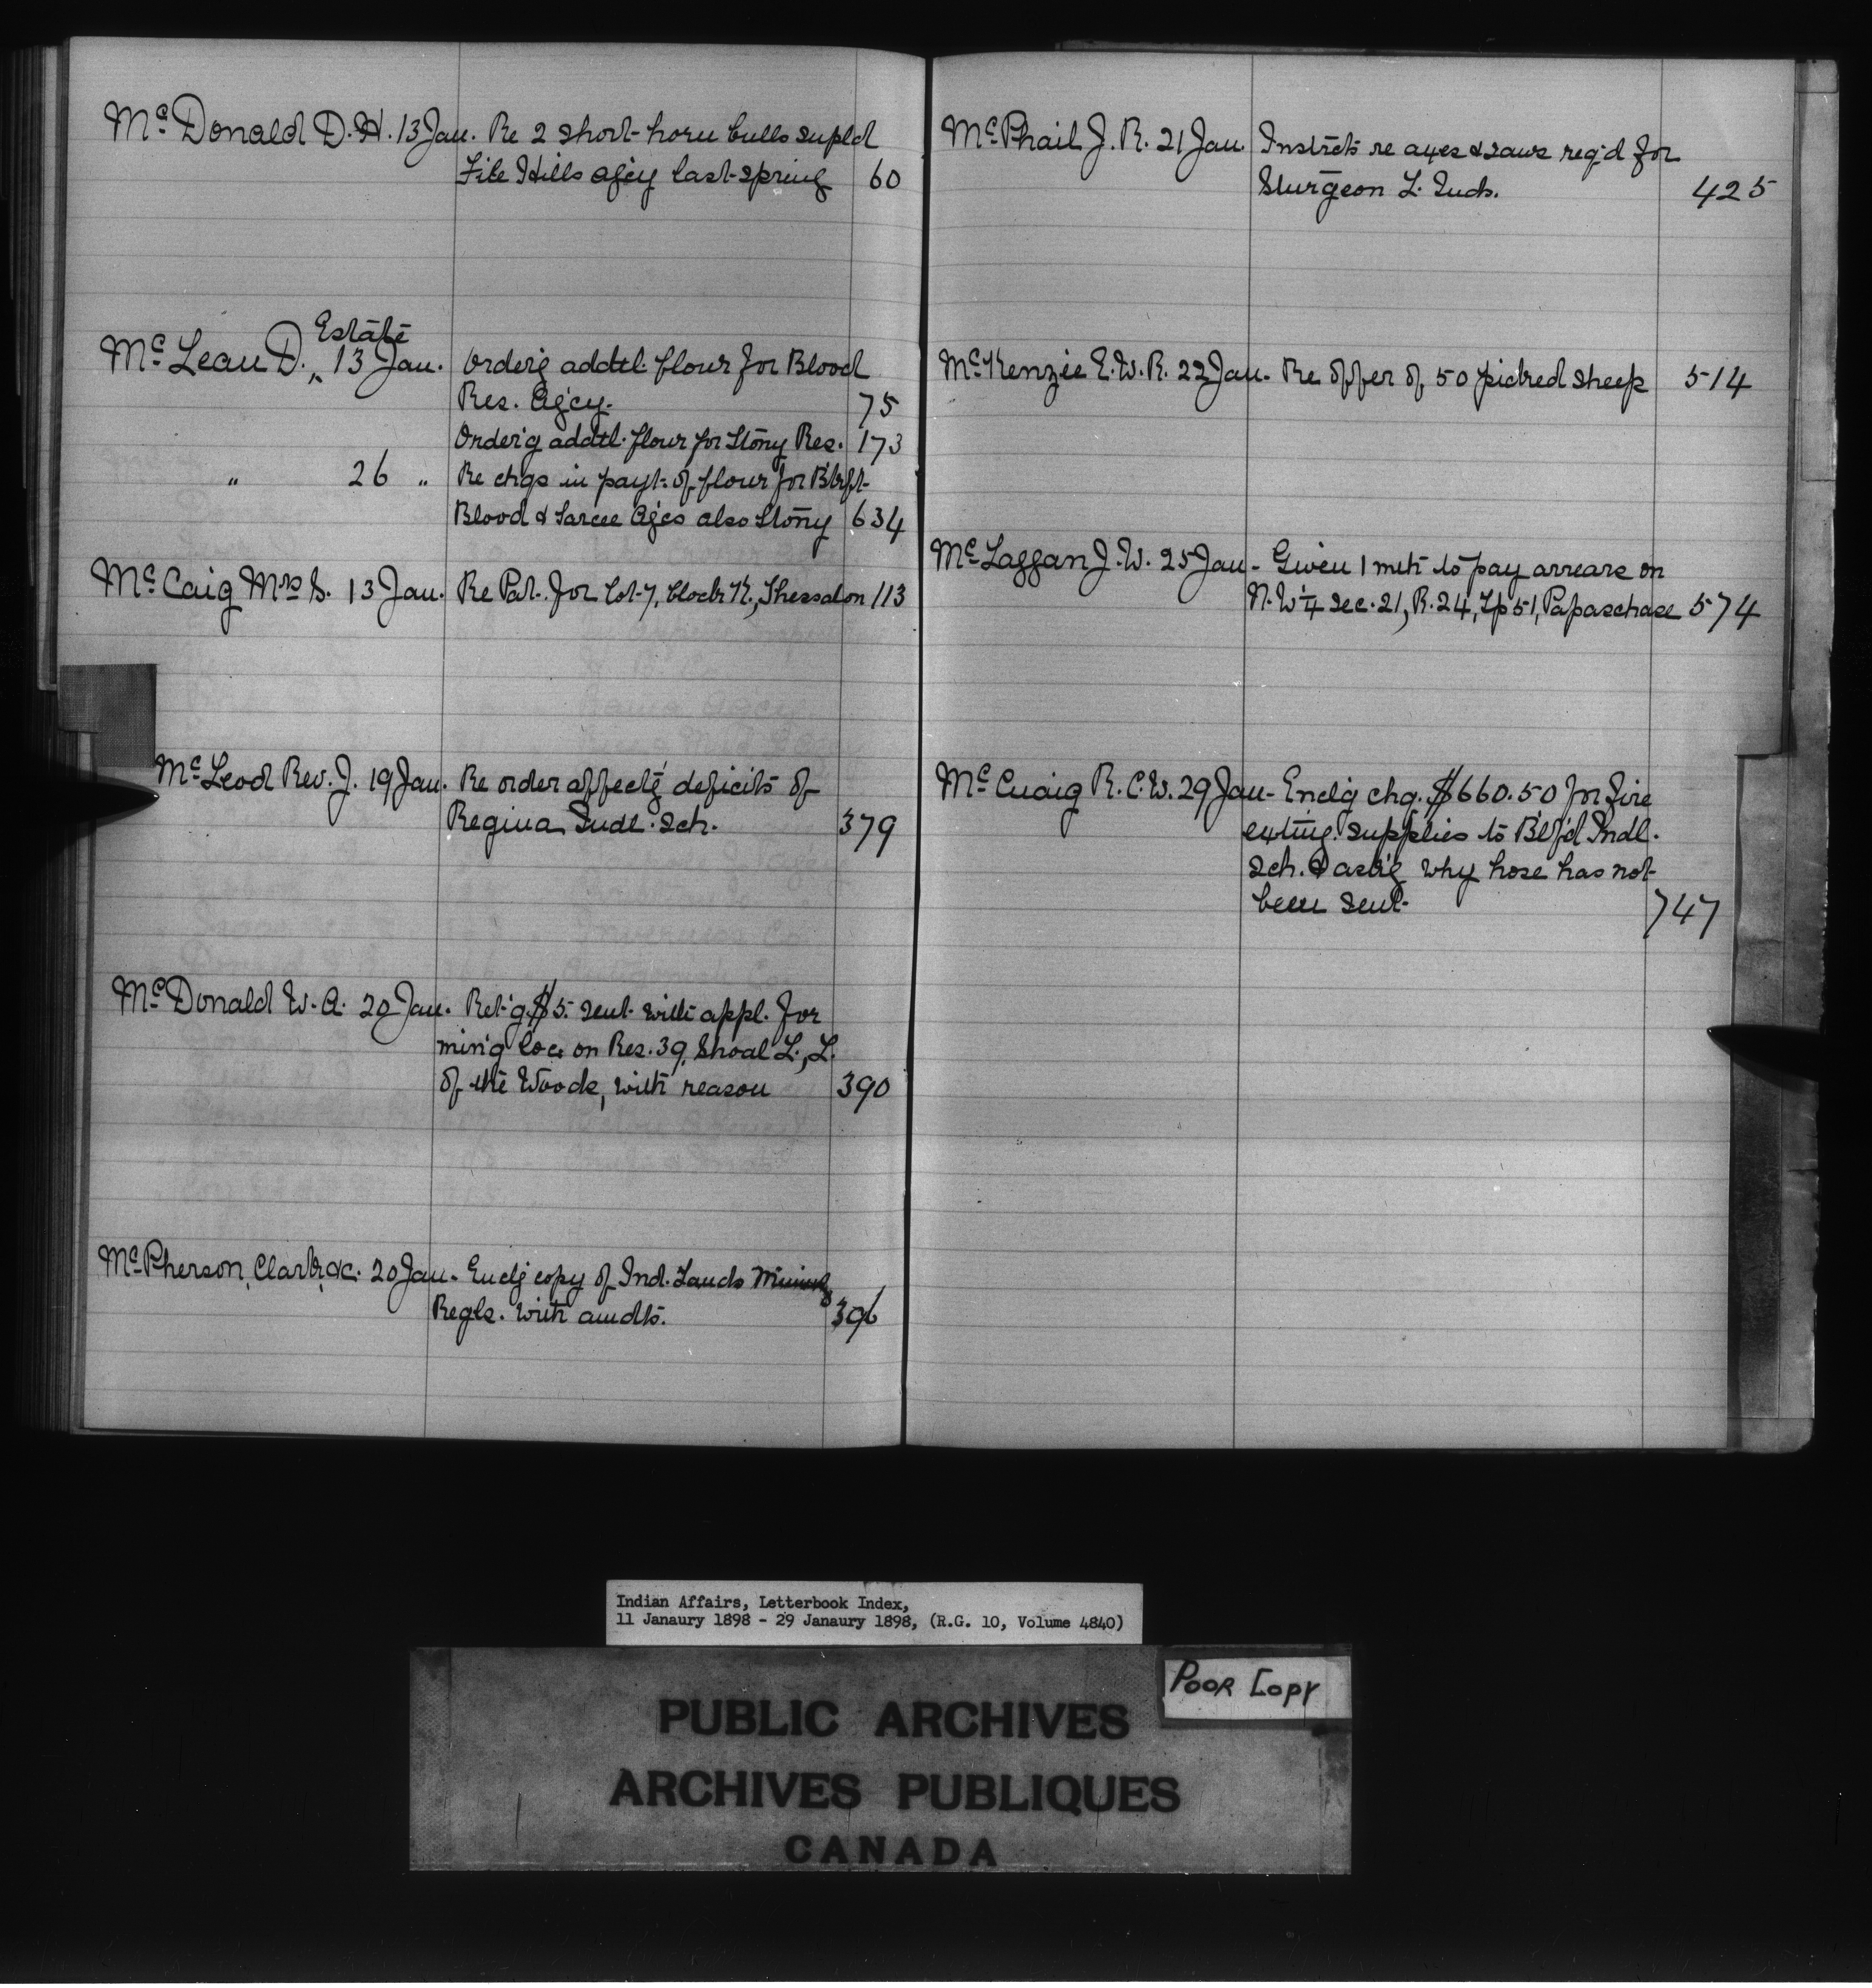 McDonald D. H. 13 Jan. Re 2 short-horn bulls supld
File Hills agcy last spring 60
Estate
McLean D. „ 13 Jan. Order'g addtl. flour for Blood
Res. Agcy. 75
Order'g addtl. flour for Stony Res. 173
„ 26 „ Re chgs in payt. of flour for Blkft
Blood & Sarcee Ag'cs also Stony 634
McCaig Mrs S. 13 Jan. Re Pat. for Lot 7, block K, Thessalon 113
McLeod Rev. J. 19 Jan. Re order affectg deficits of
Regina Indl. Sch. 379
McDonald W. A. 20 Jan. Ret'g $5. sent with appl. for
min'g loc. on Res. 39, Shoal L., L.
of the Woods, with reason 390
McPherson, Clark, &c. 20 Jan. Enclg copy of Ind. Lands Mining
Regls. with amdts. 396
McPhail J. R. 21 Jan. Instrcts re axes & saws req'd for
Sturgeon L. Inds. 425
McKenzie E. W. R. 22 Jan. Re offer of 50 picked sheep 514
McLaggan J. W. 25 Jan. Given 1 mth to pay arrears on
N. W ¼ Sec. 21, R. 24, Tp 51, Papaschase 574
McCuaig R. C. W. 29 Jan. Enclg chq. $660.50 for fire
exting. supplies to B'lf'd Indl.
Sch. & ask'g why hose has not
been sent 747
Indian Affairs, Letterbook Index,
11 Janaury 1898 - 29 Janaury 1898, (R.G. 10, Volume 4840)
Poor Copy
PUBLIC ARCHIVES
ARCHIVES PUBLIQUES
CANADA